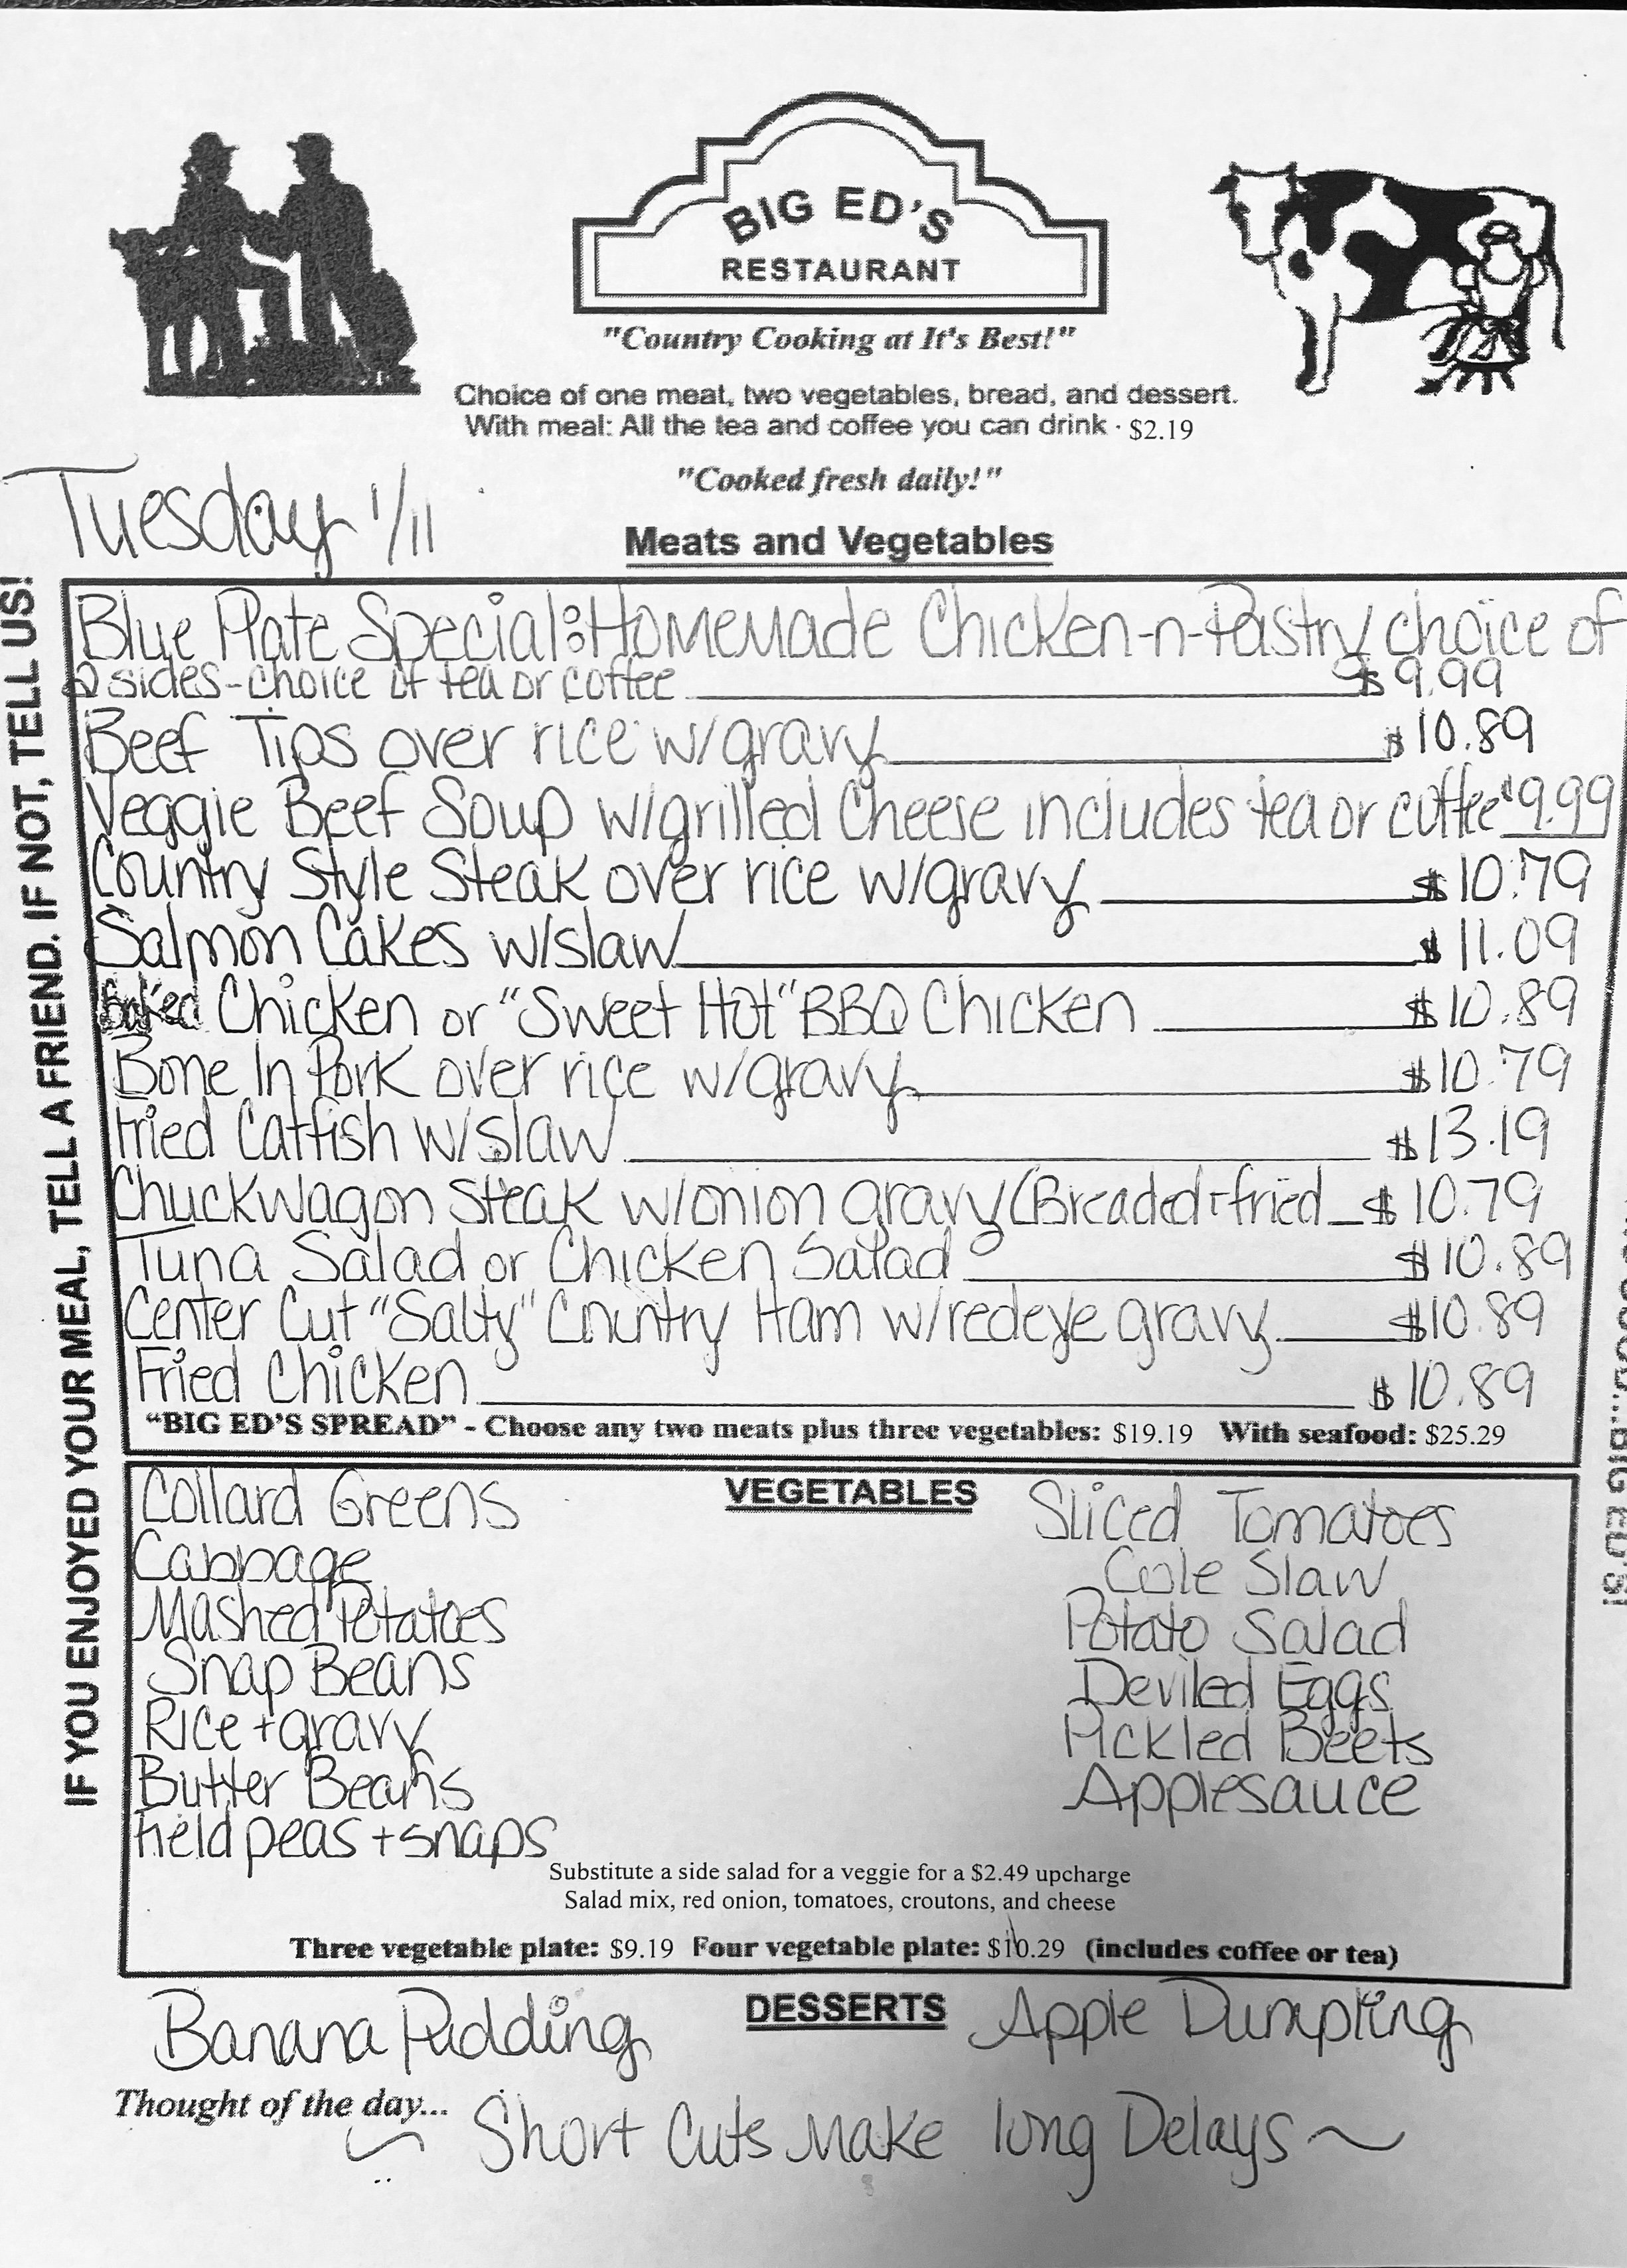 BIG ED'S
RESTAURANT
"Country Cooking at It's Best!"
Choice of one meat, two vegetables, bread, and dessert.
With meal: All the tea and coffee you can drink · $2.19
"Cooked fresh daily!"
Tuesday 1/11
Meats and Vegetables
IF YOU ENJOYED YOUR MEAL, TELL A FRIEND. IF NOT, TELL US!
Blue Plate Special: Homemade Chicken-n-Pastry choice of
2 sides-choice of tea or coffee $9.99
Beef Tips over rice w/gravy $10.89
Veggie Beef Soup w/grilled Cheese includes tea or coffee $9.99
Country Style Steak over rice w/gravy $10.79
Salmon Cakes w/slaw $11.09
Baked Chicken or "Sweet Hot" BBQ Chicken $10.89
Bone In Pork over rice w/gravy $10.79
Fried Catfish w/slaw $13.19
Chuckwagon Steak w/onion gravy (Breaded + fried $10.79
Tuna Salad or Chicken Salad $10.89
Center Cut "Salty" Country Ham w/redeye gravy $10.89
Fried Chicken $10.89
"BIG ED'S SPREAD" - Choose any two meats plus three vegetables: $19.19 With seafood: $25.29
BIG ED'S!
VEGETABLES
Collard Greens
Cabbage
Mashed Potatoes
Snap Beans
Rice + gravy
Butter Beans
Field peas + snaps
Sliced Tomatoes
Cole Slaw
Potato Salad
Deviled Eggs
Pickled Beets
Applesauce
Substitute a side salad for a veggie for a $2.49 upcharge
Salad mix, red onion, tomatoes, croutons, and cheese
Three vegetable plate: $9.19 Four vegetable plate: $10.29 (includes coffee or tea)
DESSERTS
Banana Pudding
Apple Dumpling
Thought of the day...
Short Cuts Make long Delays ~